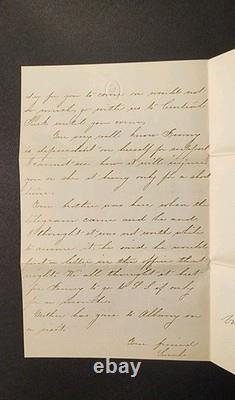 day for you to come on would not
so much, go with us to Central
Park until you come,
You my will know Fanny
is dependent on himself for support
I cannot see how it will injure
you or she it being only for a short
time.
Your brother was here when the
telegram came and he and
I thought it was not worth while
to answer it, he said he would
a letter in this office that
night. We all thought it best
for Fanny to go to S I if only
for a month.
Mother has gone to Albany on
a visit.
Your friend
© ebay